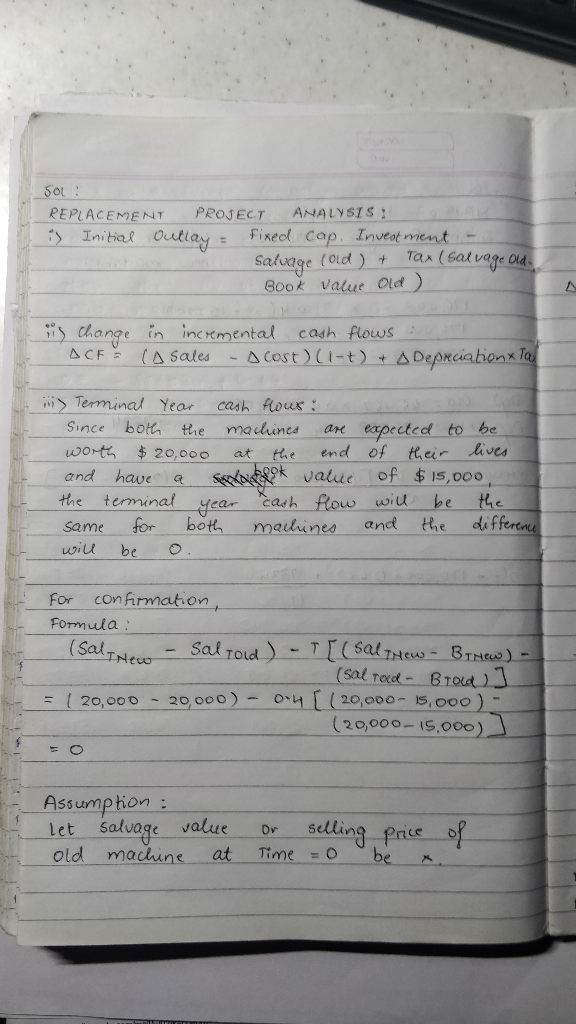 SOL :
REPLACEMENT PROJECT ANALYSIS :
i) Initial Outlay = Fixed Cap. Investment -
Salvage (old) + Tax (Salvage Old -
Book Value Old )
ii) Change in incremental cash flows
Δ CF = (Δ Sales - Δ Cost) (1-t) + Δ Depreciation x Ta
iii) Terminal Year cash flows :
Since both the machines are expected to be
worth $ 20,000 at the end of their lives
and have a book value of $ 15,000,
the terminal year cash flow will be the
same for both machines and the difference
will be 0.
For confirmation,
Formula :
(Sal TNew - Sal TOld ) - T [ ( Sal TNew - B TNew ) -
(Sal TOld - B TOld ) ]
= ( 20,000 - 20,000) - 0.4 [ ( 20,000 - 15,000 ) -
(20,000 - 15,000) ]
= 0
Assumption :
Let salvage value or selling price of
old machine at Time = 0 be x.
Δ